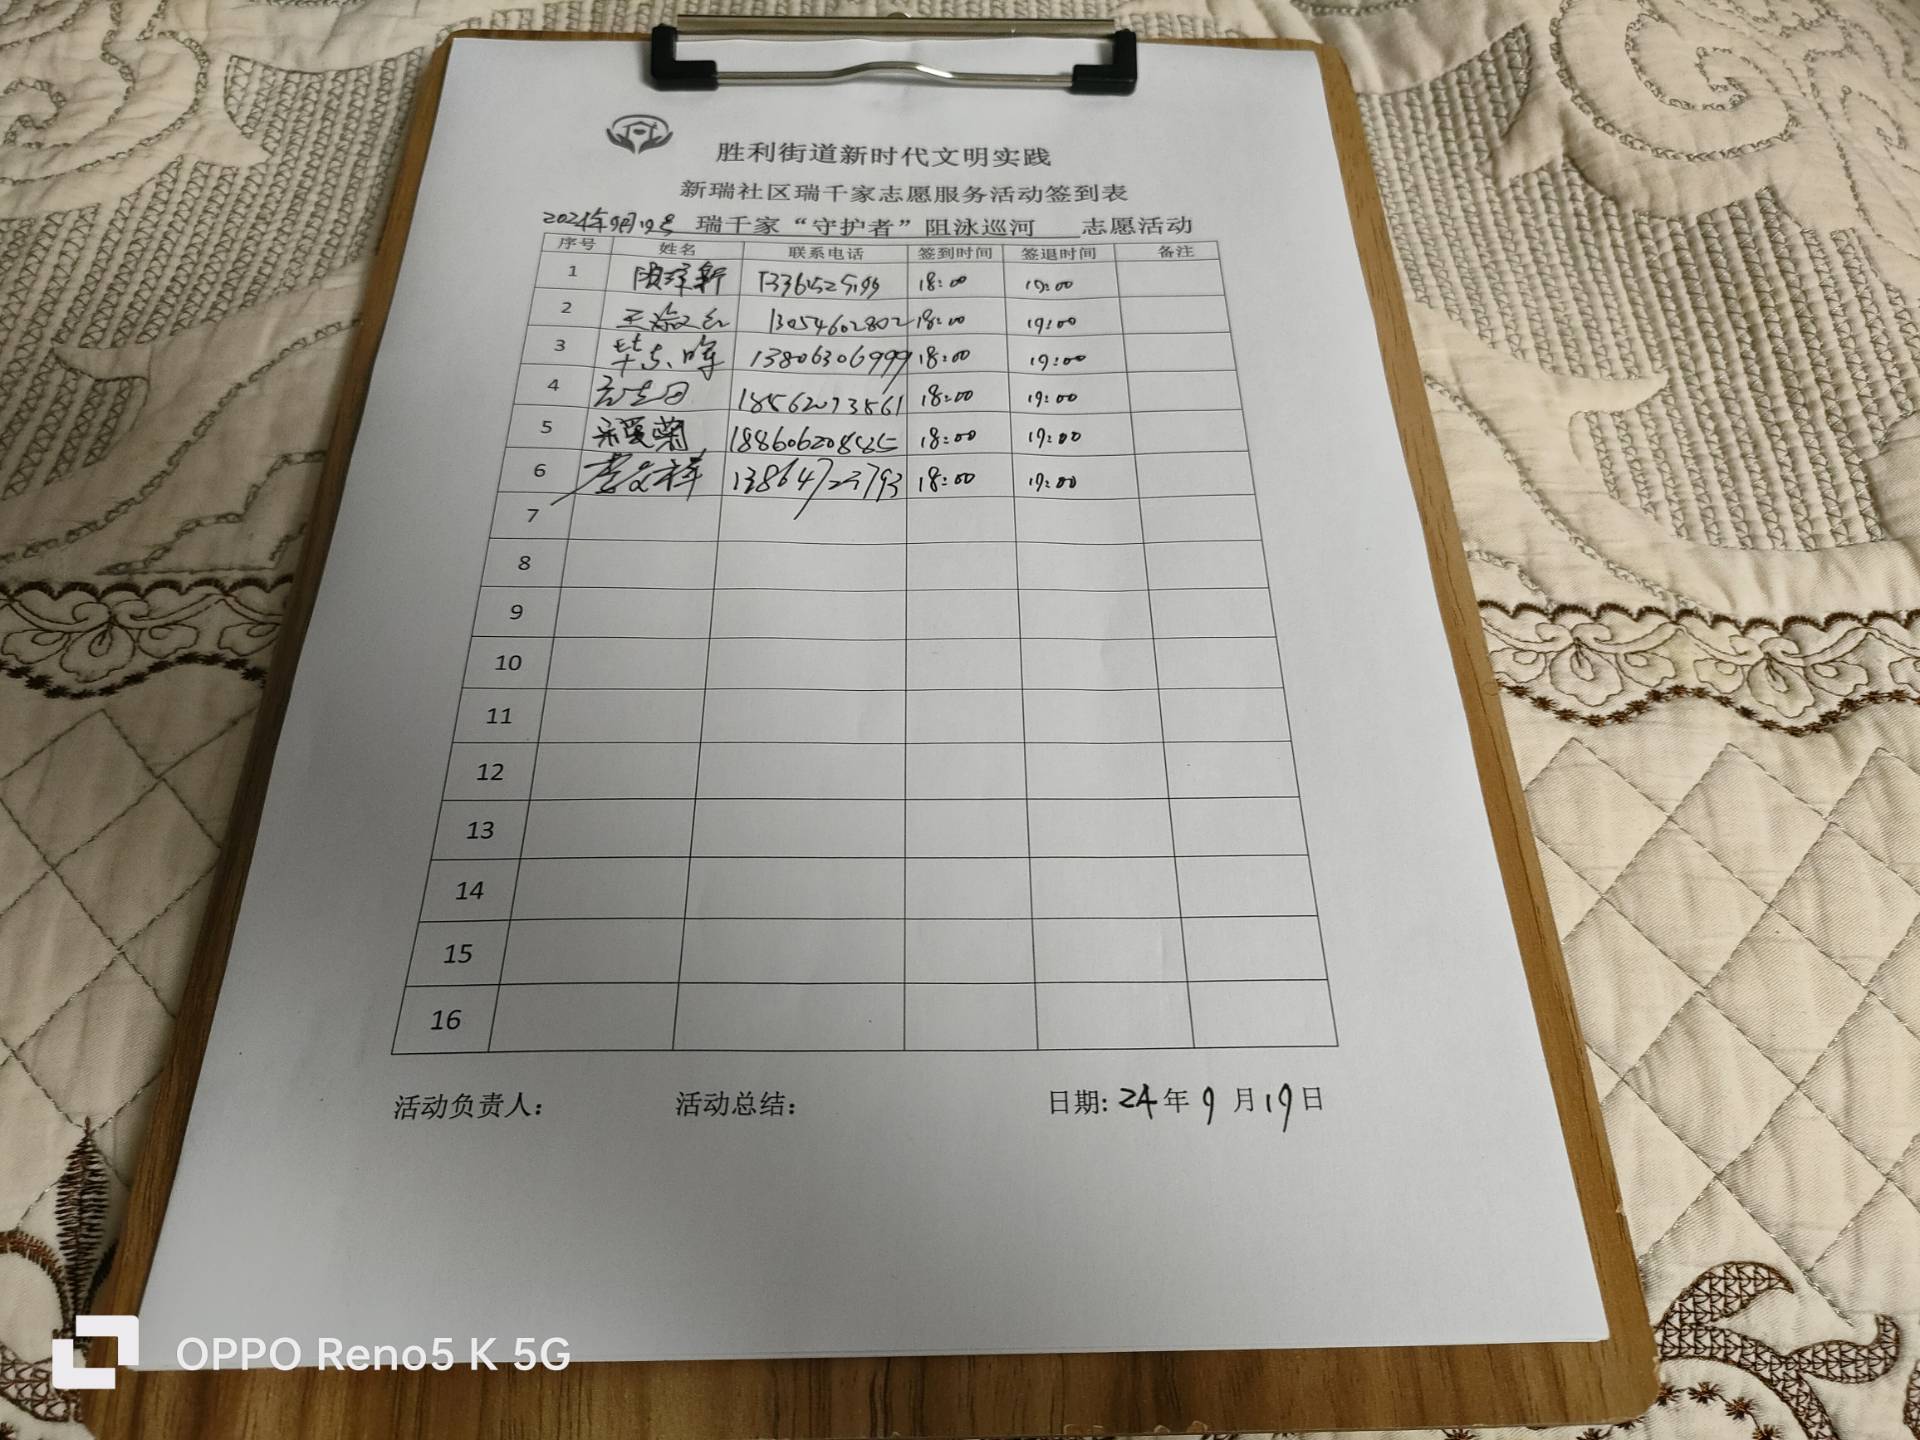 胜利街道新时代文明实践
新瑞社区瑞千家志愿服务活动签到表
2024年9月19号 瑞千家“守护者”阻泳巡河 志愿活动
序号 姓名 联系电话 签到时间 签退时间 备注
1 18:00 19:00
2 13054602802 18:00 19:00
3 13806306999 18:00 19:00
4 18562073561 18:00 19:00
5 188606208525 18:00 19:00
6 李文祥 13864723793 18:00 19:00
7
8
9
10
11
12
13
14
15
16
活动负责人: 活动总结: 日期: 24年9月19日
OPPO Reno5 K 5G